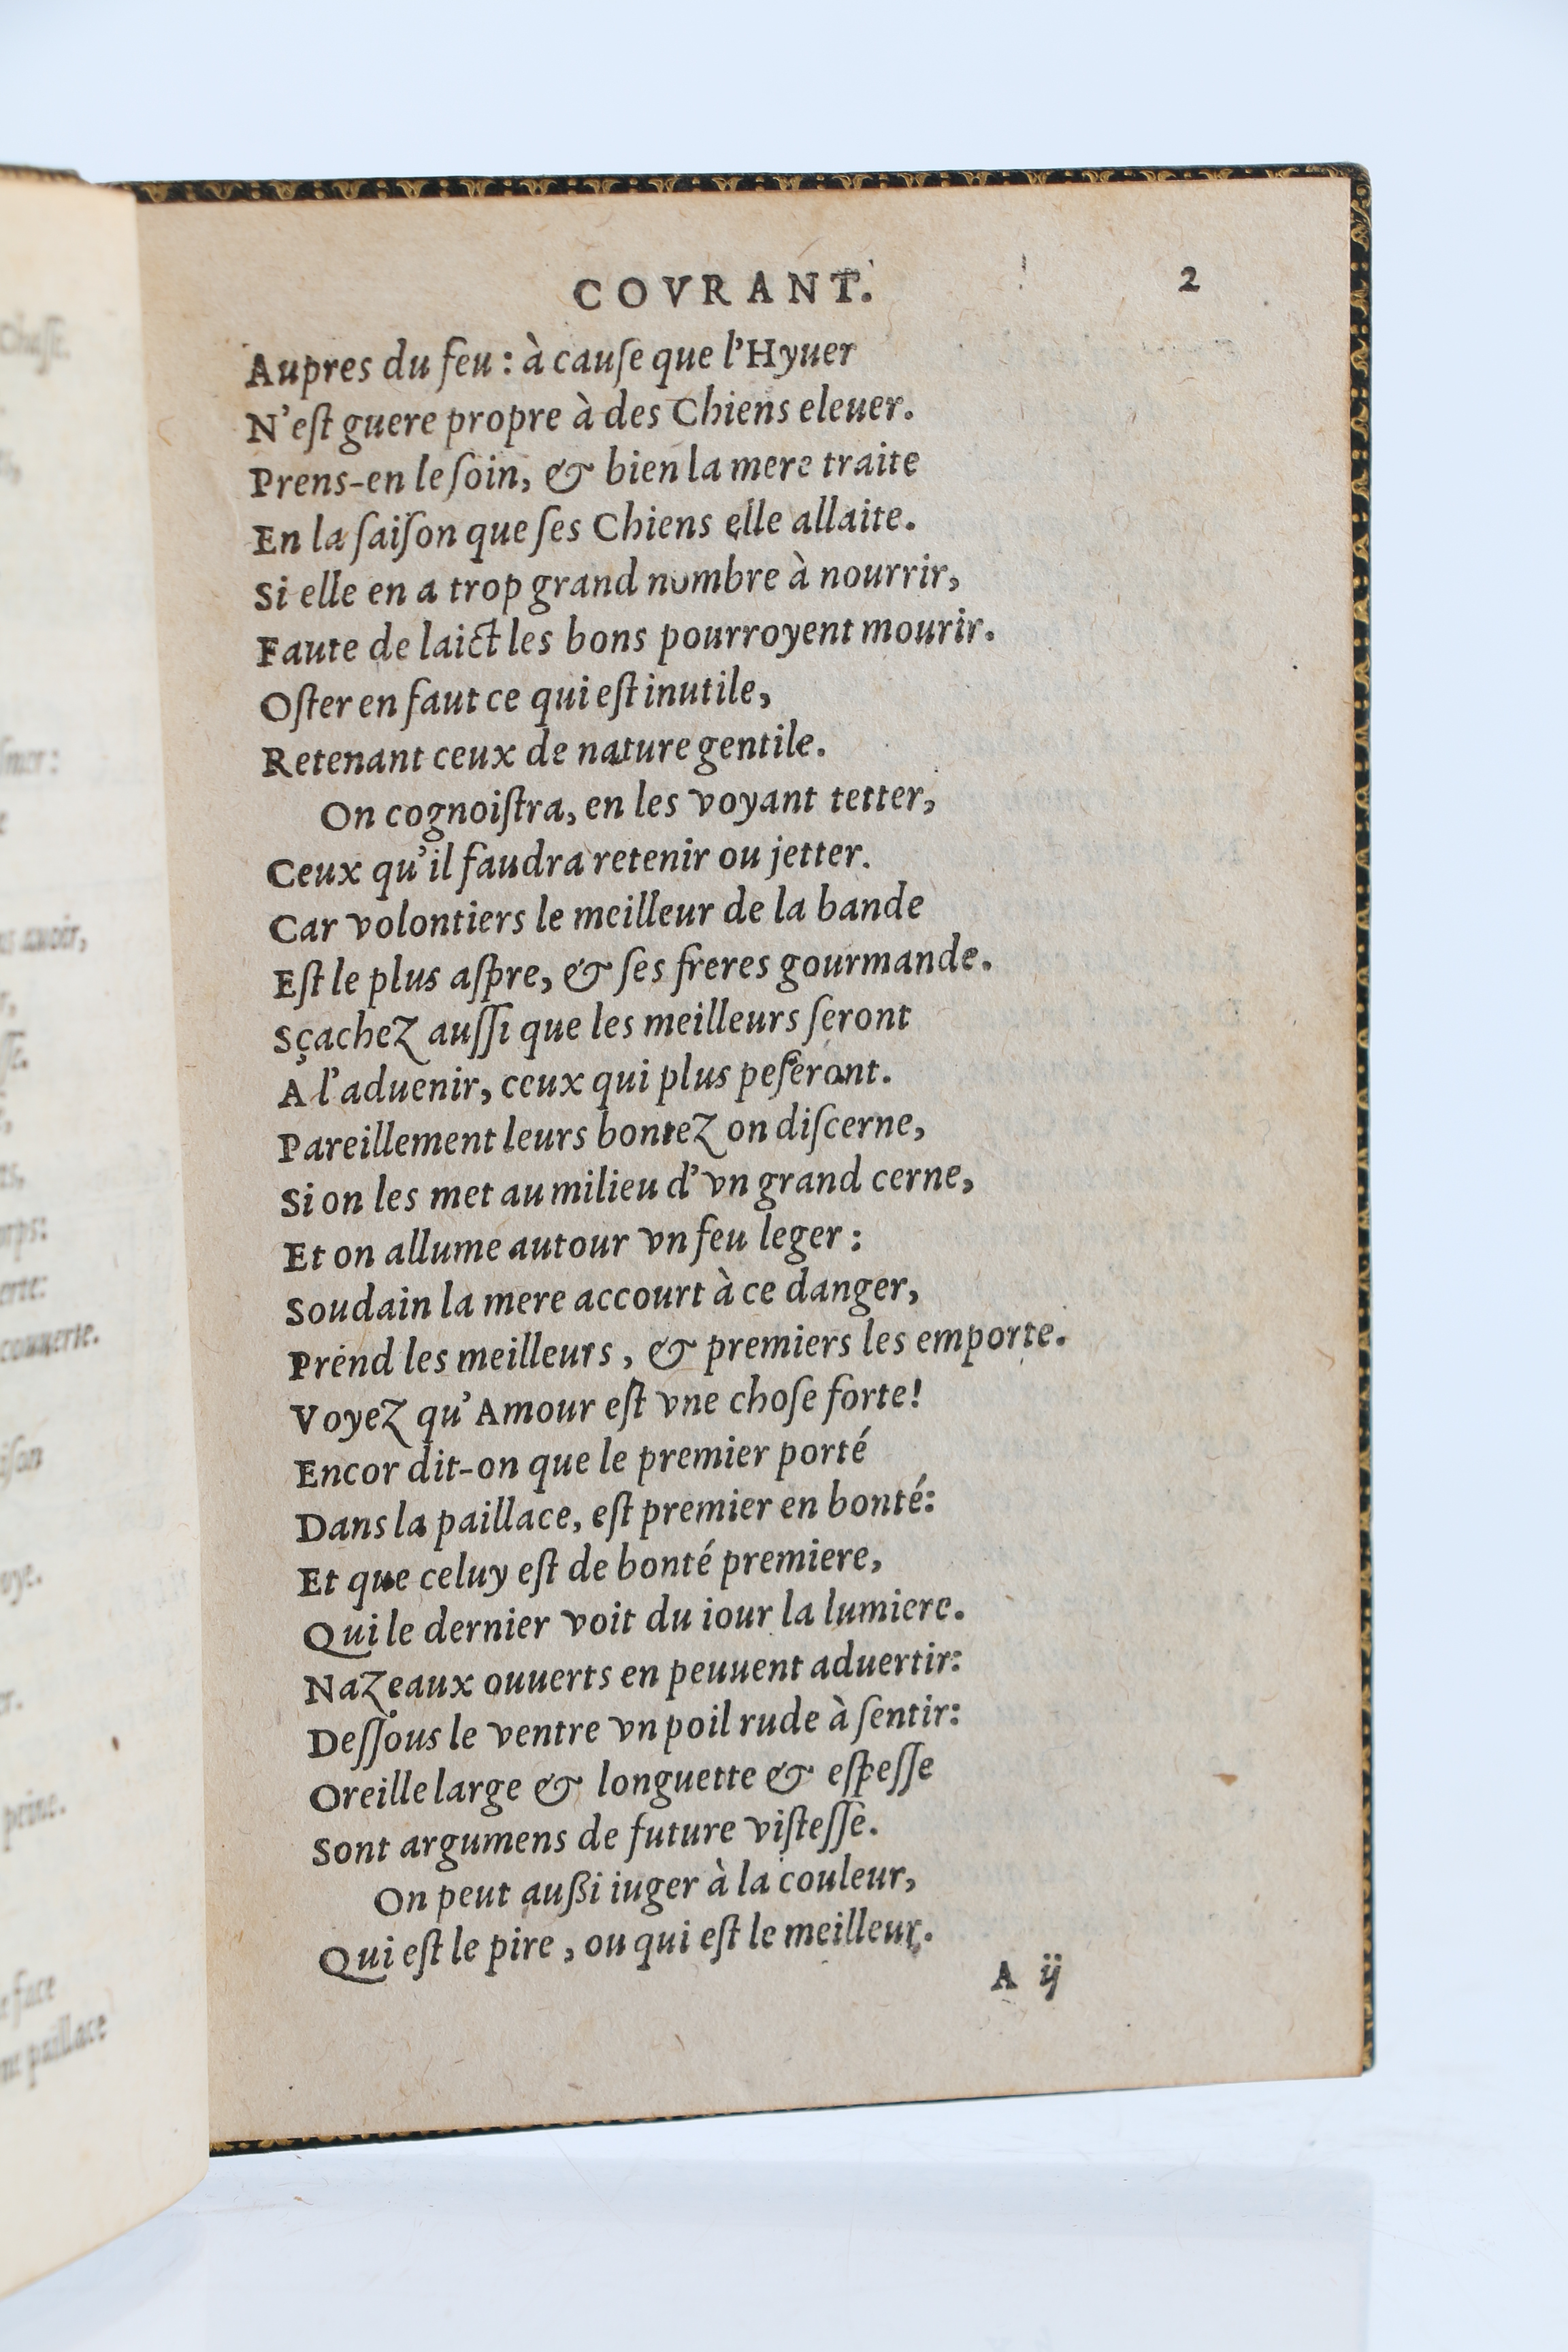 COVRANT. 2
Aupres du feu : à cauſe que l'Hyuer
N'eſt guere propre à des Chiens eleuer.
Prens-en le ſoin, & bien la mere traite
En la ſaiſon que ſes Chiens elle allaite.
Si elle en a trop grand nombre à nourrir,
Faute de laict les bons pourroyent mourir.
Oſter en faut ce qui eſt inutile,
Retenant ceux de nature gentile.
On cognoiſtra, en les voyant tetter,
Ceux qu'il faudra retenir ou jetter.
Car volontiers le meilleur de la bande
Eſt le plus aſpre, & ſes freres gourmande.
Sçachez auſſi que les meilleurs ſeront
A l'aduenir, ceux qui plus peſeront.
Pareillement leurs bontez on diſcerne,
Si on les met au milieu d'vn grand cerne,
Et on allume autour vn feu leger :
Soudain la mere accourt à ce danger,
Prend les meilleurs, & premiers les emporte.
Voyez qu'Amour eſt vne choſe forte!
Encor dit-on que le premier porté
Dans la paillace, eſt premier en bonté:
Et que celuy eſt de bonté premiere,
Qui le dernier voit du iour la lumiere.
Nazeaux ouuerts en peuuent aduertir:
Deſſous le ventre vn poil rude à ſentir:
Oreille large & longuette & eſpeſſe
Sont argumens de future viſteſſe.
On peut außi iuger à la couleur,
Qui eſt le pire, ou qui eſt le meilleur.
A ij
auoir,
couuerte.
peine.
face
paillace